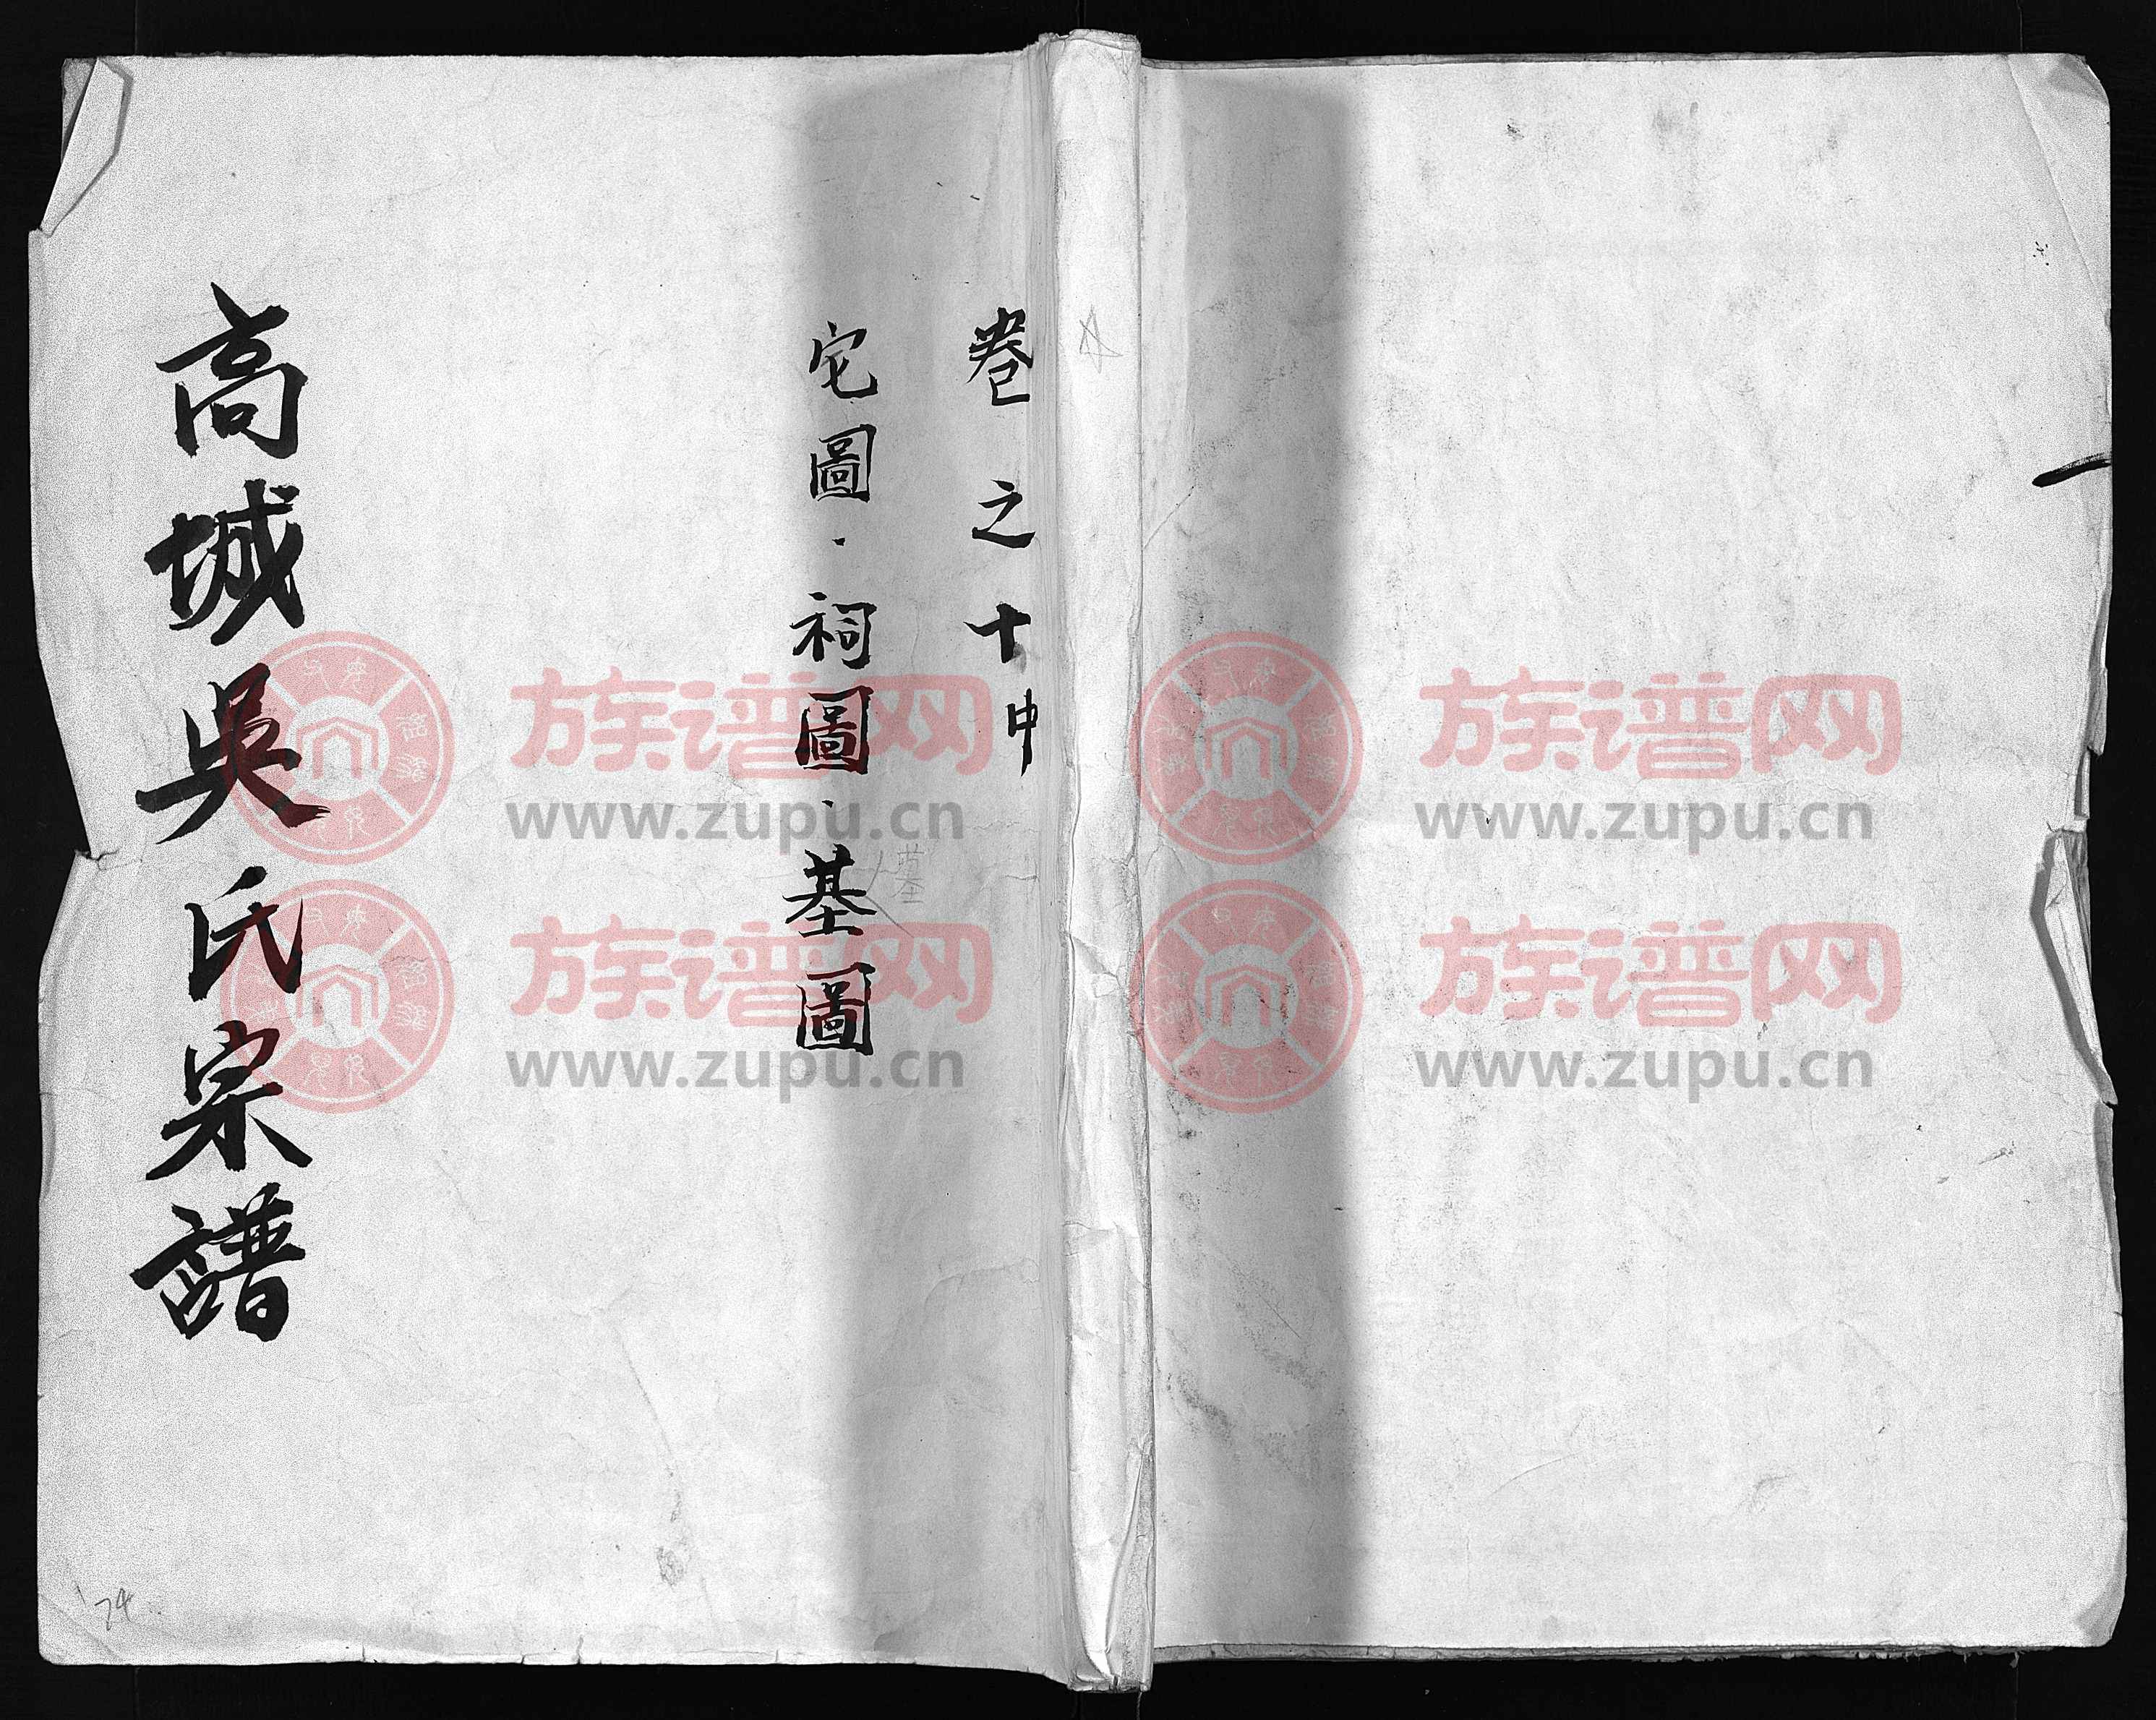 卷之十中
宅圖·祠圖·基圖
墓
高城吳氏宗譜
74
族谱网
www.zupu.cn
族谱网
www.zupu.cn
族谱网
www.zupu.cn
族谱网
www.zupu.cn